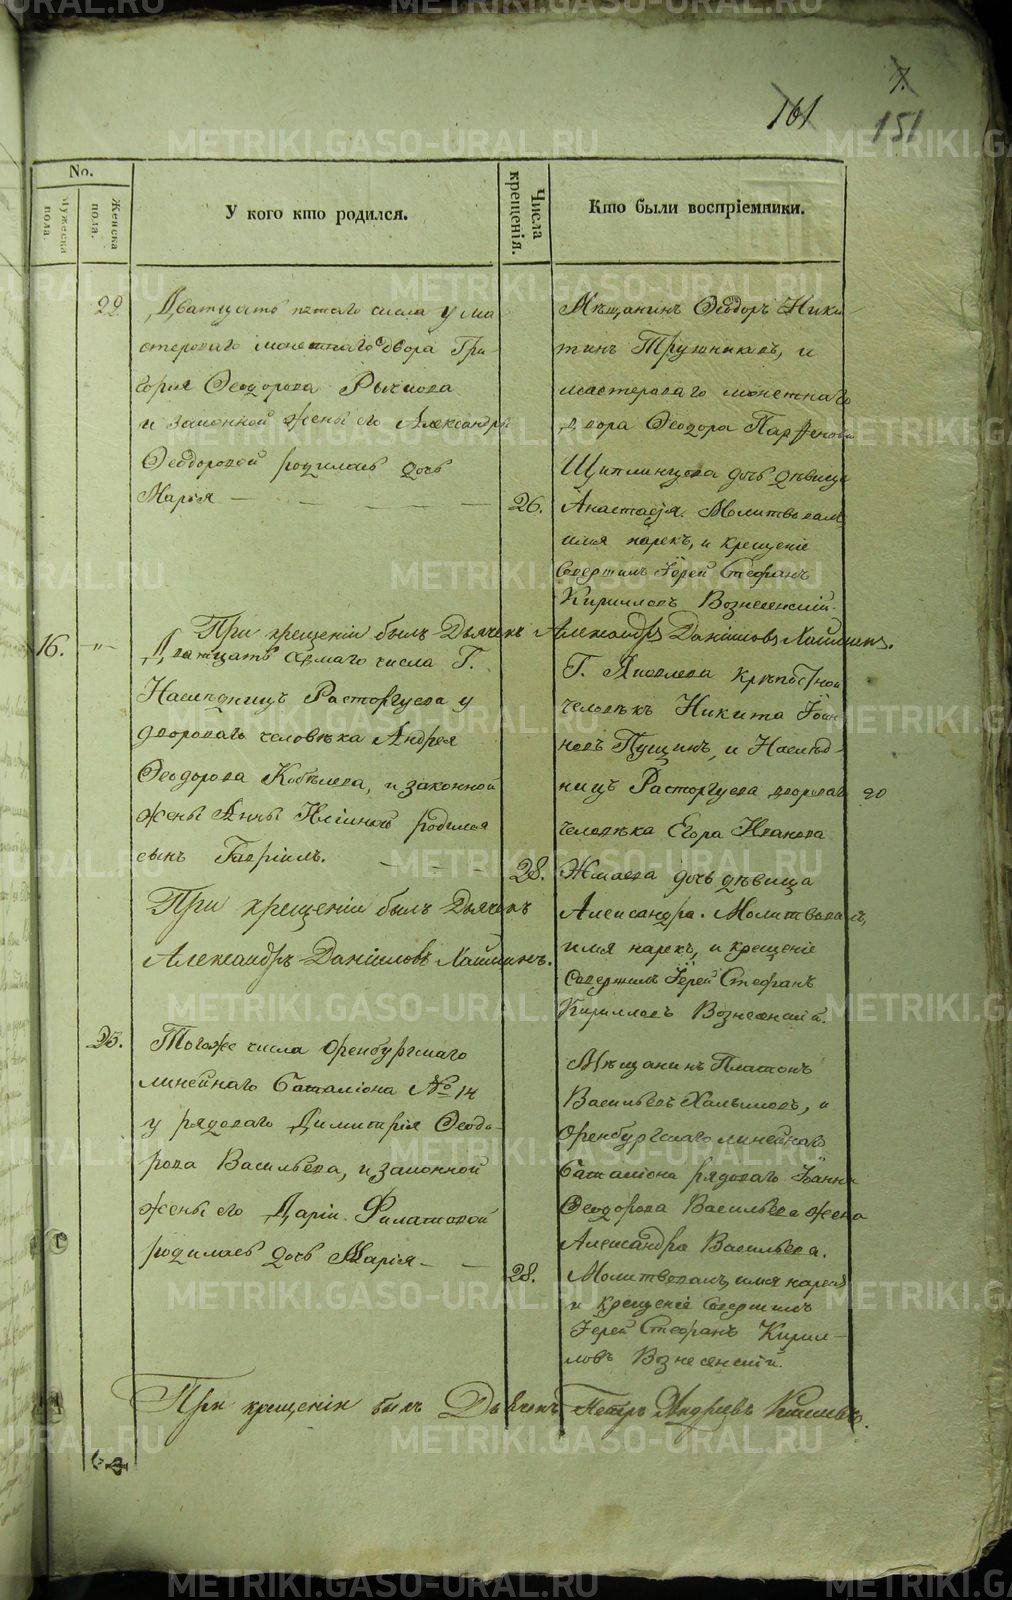 7.
161
151
No.
Мужеска пола.
Женска пола.
У кого кто родился.
Числа крещенія.
Кто были воспріемники.
22
Дватцать пятаго числа у ма
стероваго монетнаго двора Гри-
горія Ѳеодорова
и законной жены его Александры
Ѳеодоровой родилась дочь
Марія —
26.
Мѣщанинъ Ѳеодоръ Ники
тинъ и
мастероваго монетнаго
двора Ѳеодора
дочь дѣвица
Анастасія. Молитвовалъ,
имя нарекъ, и крещеніе
совершилъ Іерей Стефанъ
Кирилловъ Вознесенскій.
При крещеніи былъ Дьячекъ Александръ Даніиловъ
16.
-"-
Дватцать числа Г.
Наслѣдницъ Расторгуева у
двороваго человѣка Андрея
Ѳеодорова Кобѣлева, и законной
жены Анны родился
сынъ Гавріилъ. —
28.
При крещеніи былъ Дьячекъ
Александръ Даніиловъ
Г. Яковлева крѣпостной
человѣкъ Никита Іоан
новъ Пущинъ, и Наслѣд-
ницъ Расторгуева двороваго
человѣка Егора Иванова
дочь дѣвица
Александра. Молитвовалъ,
имя нарекъ, и крещеніе
совершилъ Іерей Стефанъ
Кирилловъ Вознесенскій.
23.
Тогоже числа Оренбургскаго
линейнаго Баталіона № 14
у рядоваго Димитрія Ѳеодо-
рова Васильева, и законной
жены его Даріи Филатовой
родилась дочь Марія —
28.
Мѣщанинъ Платонъ
Васильевъ и
Оренбургскаго линейнаго
Баталіона рядоваго Іоанна
Ѳеодорова Васильева жена
Александра Васильева.
Молитвовалъ, имя нарекъ
и крещеніе совершилъ
Іерей Стефанъ Кирил-
ловъ Вознесенскій.
При крещеніи былъ Дьячекъ Петръ
METRIKI.GASO-URAL.RU